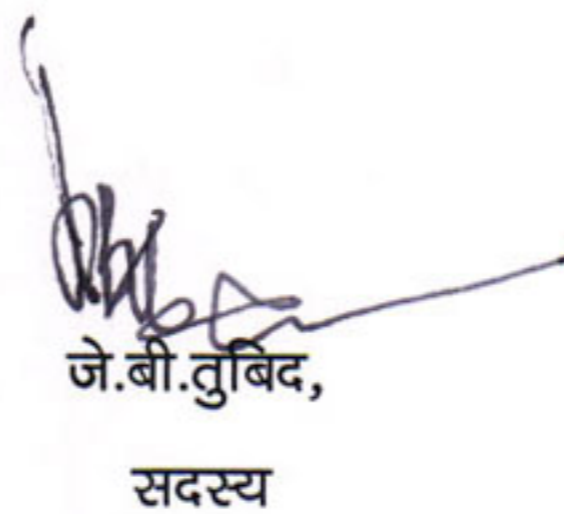 जे.बी.तुबिद,
सदस्य